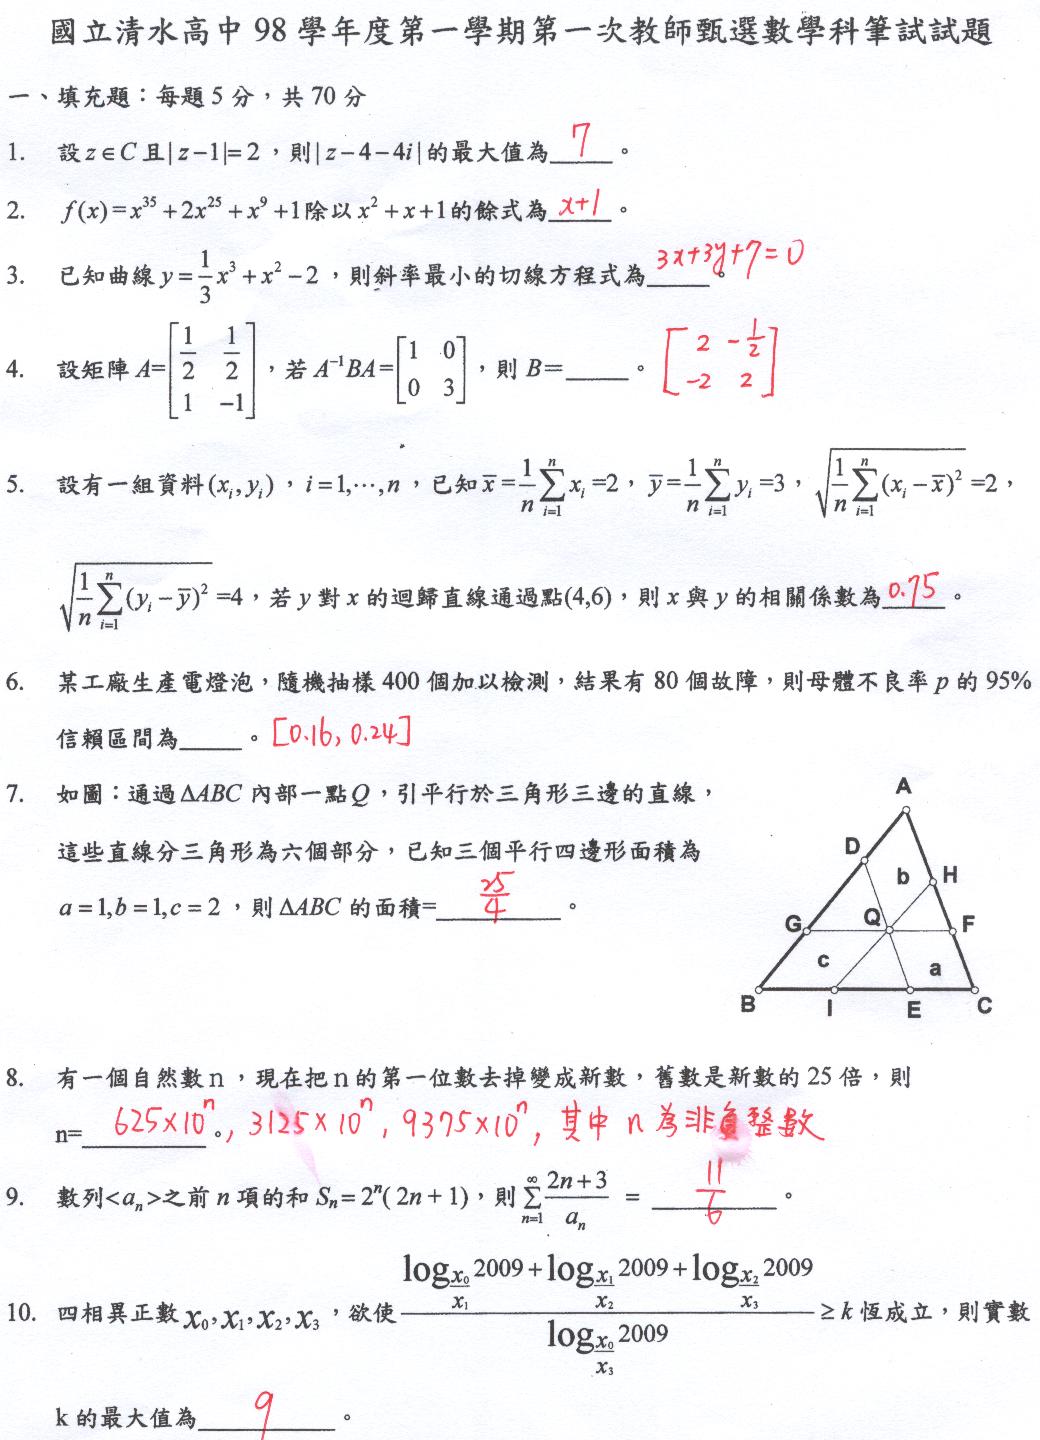 國立清水高中 98 學年度第一學期第一次教師甄選數學科筆試試題
一、填充題：每題 5 分，共 70 分
1. 設 z∈C 且 |z−1|=2，則 |z−4−4i| 的最大值為 7 。
2. f(x)=x³⁵+2x²⁵+x⁹+1 除以 x²+x+1 的餘式為 x+1 。
3. 已知曲線 y=\frac{1}{3}x³+x²−2，則斜率最小的切線方程式為____。 3x+3y+7=0
4. 設矩陣 A=\begin{bmatrix}\frac{1}{2}&\frac{1}{2}\\1&-1\end{bmatrix}，若 A⁻¹BA=\begin{bmatrix}1&0\\0&3\end{bmatrix}，則 B=____。 \begin{bmatrix}2&-\frac{1}{2}\\-2&2\end{bmatrix}
5. 設有一組資料(x_i,y_i)，i=1,⋯,n，已知 \bar{x}=\frac{1}{n}\sum_{i=1}^{n}x_i=2，\bar{y}=\frac{1}{n}\sum_{i=1}^{n}y_i=3，\sqrt{\frac{1}{n}\sum_{i=1}^{n}(x_i-\bar{x})^2}=2，
\sqrt{\frac{1}{n}\sum_{i=1}^{n}(y_i-\bar{y})^2}=4，若 y 對 x 的迴歸直線通過點(4,6)，則 x 與 y 的相關係數為 0.75 。
6. 某工廠生產電燈泡，隨機抽樣 400 個加以檢測，結果有 80 個故障，則母體不良率 p 的 95%
信賴區間為____。 [0.16, 0.24]
7. 如圖：通過 ΔABC 內部一點 Q，引平行於三角形三邊的直線，
這些直線分三角形為六個部分，已知三個平行四邊形面積為
a=1,b=1,c=2，則 ΔABC 的面積= \frac{25}{4} 。
A
D
b
H
G
Q
F
c
a
B
I
E
C
8. 有一個自然數 n，現在把 n 的第一位數去掉變成新數，舊數是新數的 25 倍，則
n=____。 625×10ⁿ, 3125×10ⁿ, 9375×10ⁿ, 其中 n 為非負整數
9. 數列<a_n>之前 n 項的和 S_n=2ⁿ(2n+1)，則 \sum_{n=1}^{∞}\frac{2n+3}{a_n} = \frac{11}{6} 。
10. 四相異正數 x₀,x₁,x₂,x₃，欲使 \frac{\log_{\frac{x_0}{x_1}}2009+\log_{\frac{x_1}{x_2}}2009+\log_{\frac{x_2}{x_3}}2009}{\log_{\frac{x_0}{x_3}}2009} ≥k 恆成立，則實數
k 的最大值為 9 。